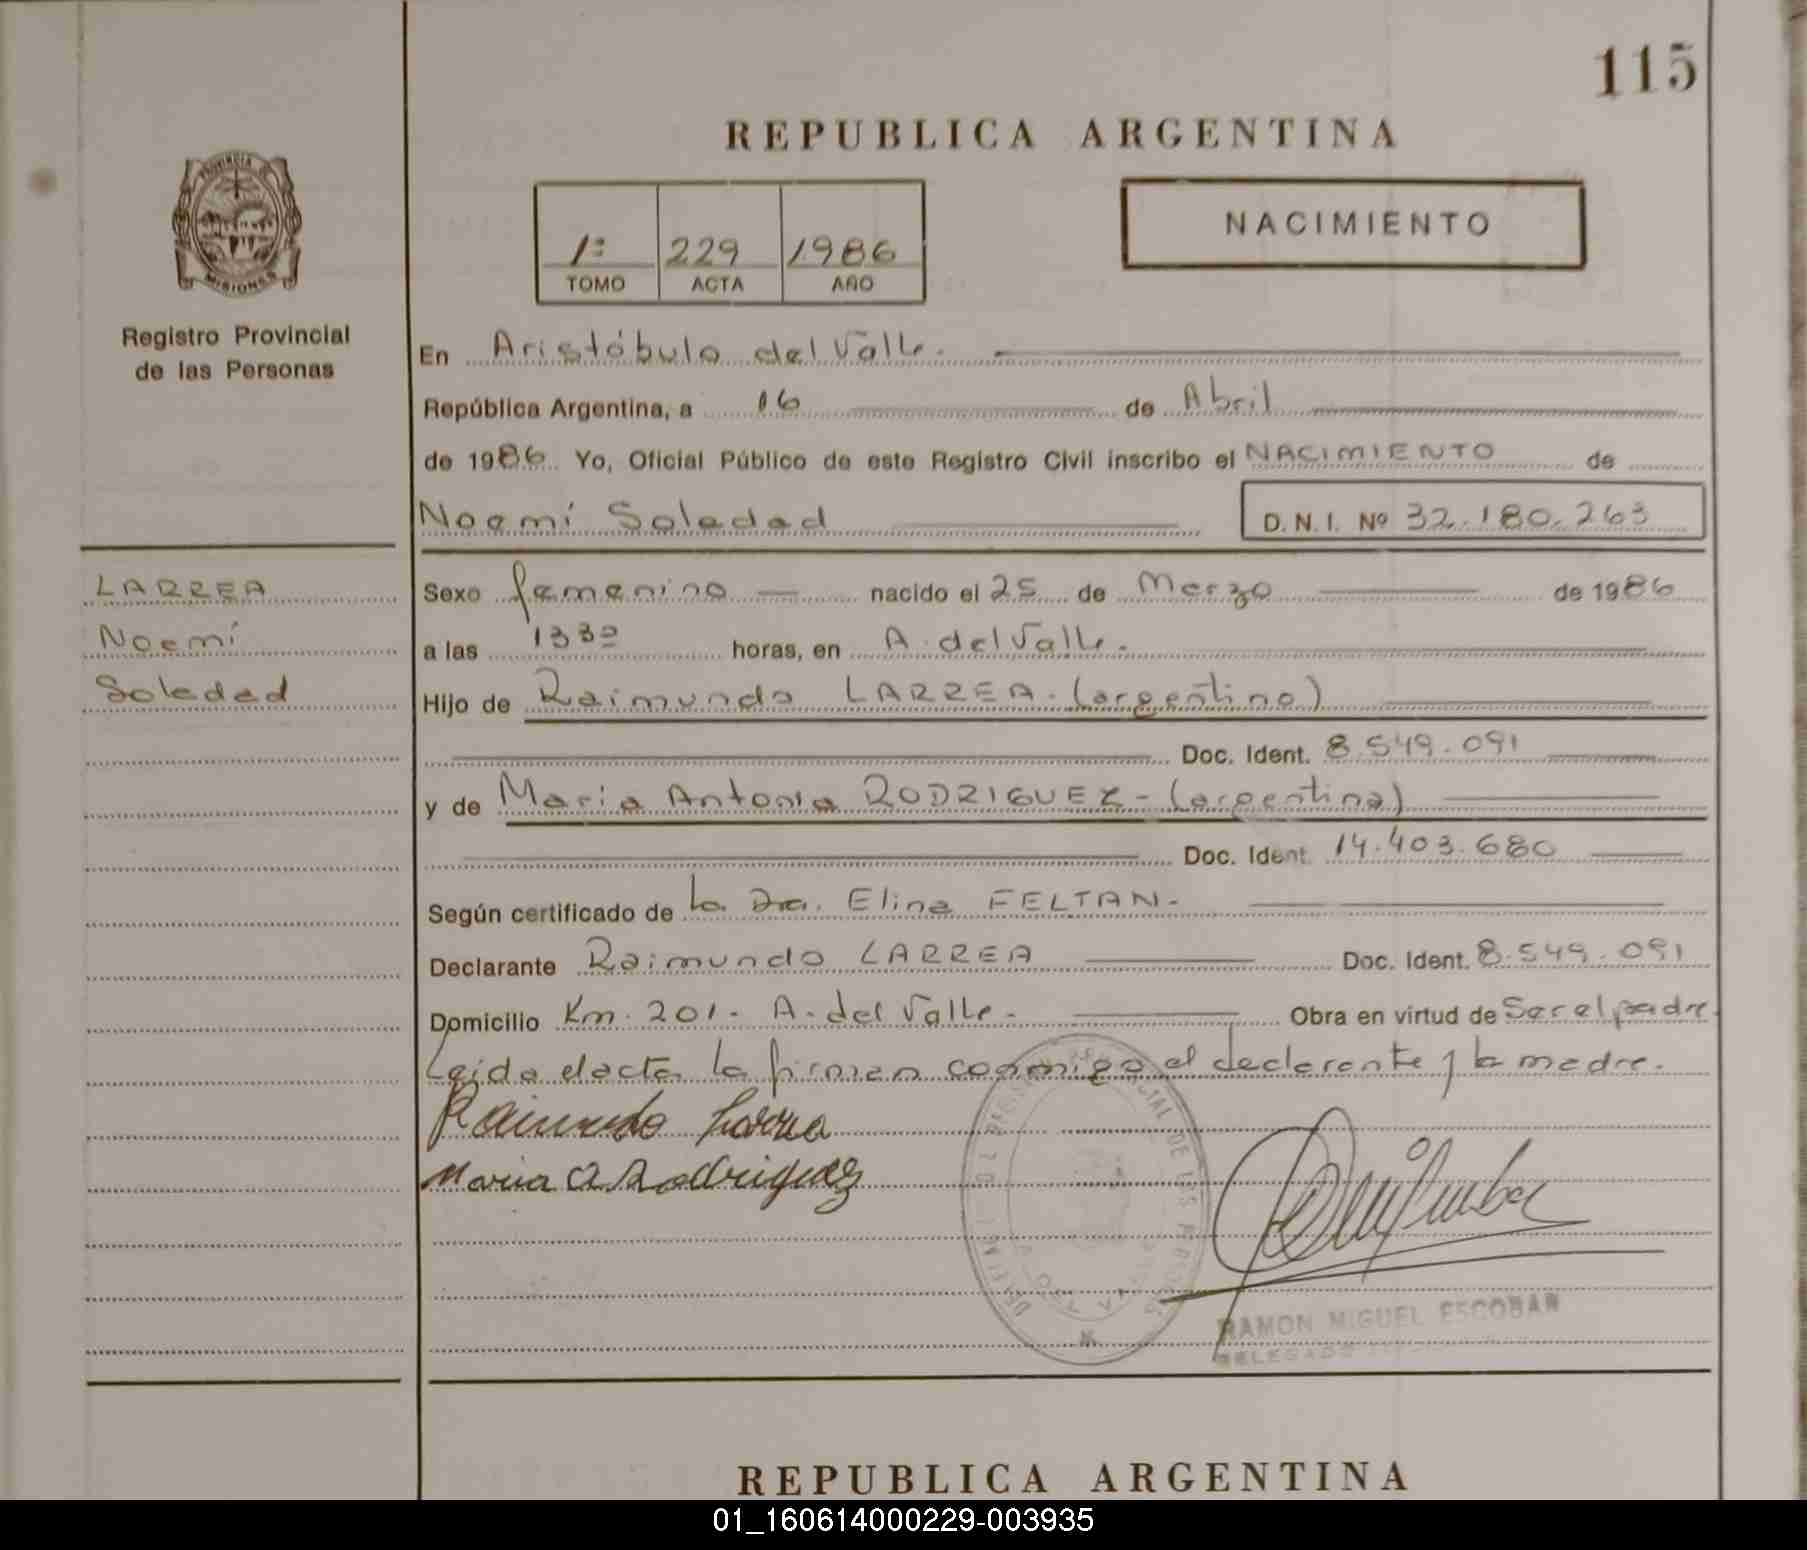 115
REPUBLICA ARGENTINA
PROVINCIA DE
MISIONES
Registro Provincial
de las Personas
NACIMIENTO
1º 229 1986
TOMO ACTA AÑO
En Aristóbulo del Valle.
República Argentina, a 16 de Abril
de 1986 Yo, Oficial Público de este Registro Civil inscribo el NACIMIENTO de
Noemí Soledad D.N.I. Nº 32.180.263
LARREA
Noemí
Soledad
Sexo femenino nacido el 25 de Marzo de 1986
a las 13 30 horas, en A. del Valle.
Hijo de Raimundo LARREA. (argentino)
Doc. Ident. 8.549.091
y de Maria Antonia RODRIGUEZ - (argentina)
Doc. Ident. 14.403.680
Según certificado de la Dra. Elina FELTAN.
Declarante Raimundo LARREA Doc. Ident. 8.549.091
Domicilio Km. 201 - A. del Valle. Obra en virtud de Ser el padre.
Leida el acta la firman conmigo el declarante y la madre.
Raimundo Larrea
Maria A Rodriguez
RAMON MIGUEL ESCOBAR
DELEGADO
REPUBLICA ARGENTINA
01_160614000229-003935